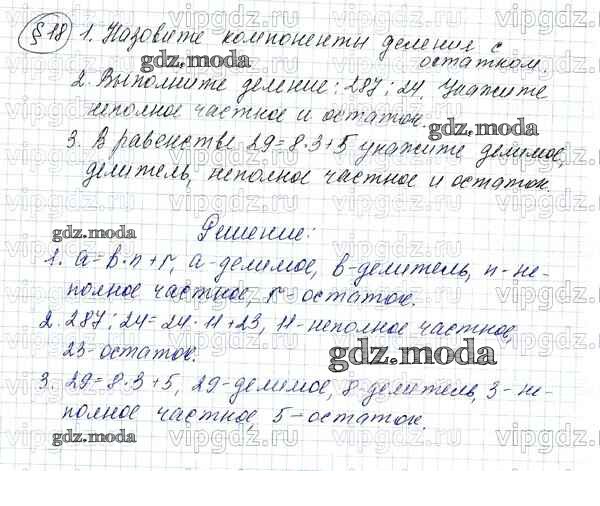 §18 1. Назовите компоненты деления с
остатком.
2. Выполните деление: 287:24. Укажите
неполное частное и остаток.
3. В равенстве 29=8·3+5 укажите делимое,
делитель, неполное частное и остаток.
Решение:
1. a=b·n+r, a-делимое, b-делитель, n-не-
полное частное, r- остаток.
2. 287:24=24·11+23, 11-неполное частное,
23-остаток.
3. 29=8·3+5, 29-делимое, 8-делитель, 3-не-
полное частное, 5-остаток.
gdz.moda
gdz.moda
gdz.moda
gdz.moda
gdz.moda
vipgdz.ru